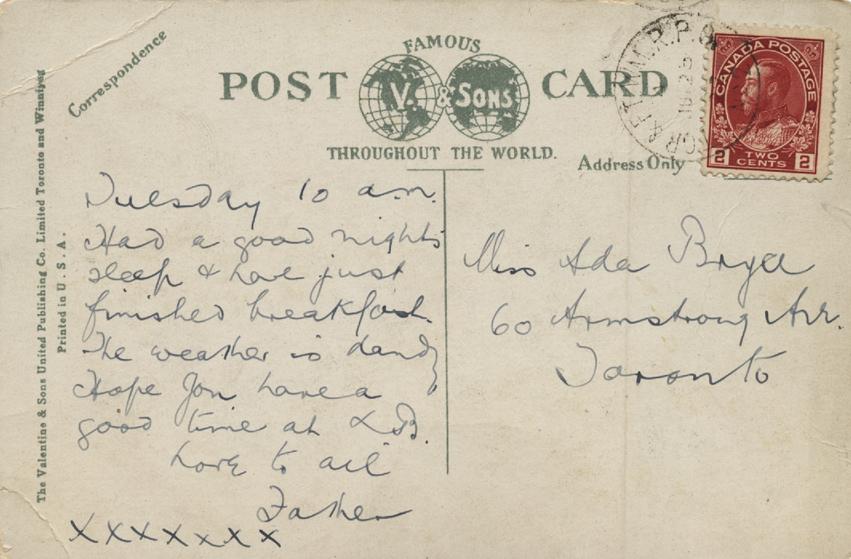 Correspondence
FAMOUS
POST CARD
V. & SONS
THROUGHOUT THE WORLD.
Address Only
R.P.O.
CANADA POSTAGE
2 TWO CENTS 2
The Valentine & Sons United Publishing Co. Limited Toronto and Winnipeg
Printed in U.S.A.
Tuesday 10 a.m.
Had a good nights
sleep & have just
finished breakfast.
The weather is dandy
Hope you have a
good time at L.B.
Love to all
Father
xxxxxxx
Miss Ada
60 Armstrong Ave.
Toronto